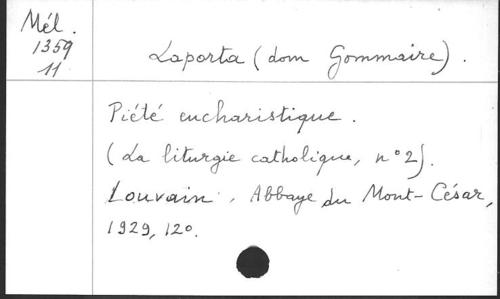 Mél.
1359
11
Laporta (dom Gommaire).
Piété eucharistique.
(La liturgie catholique, n°2).
Louvain, Abbaye du Mont-César,
1929, 12°.